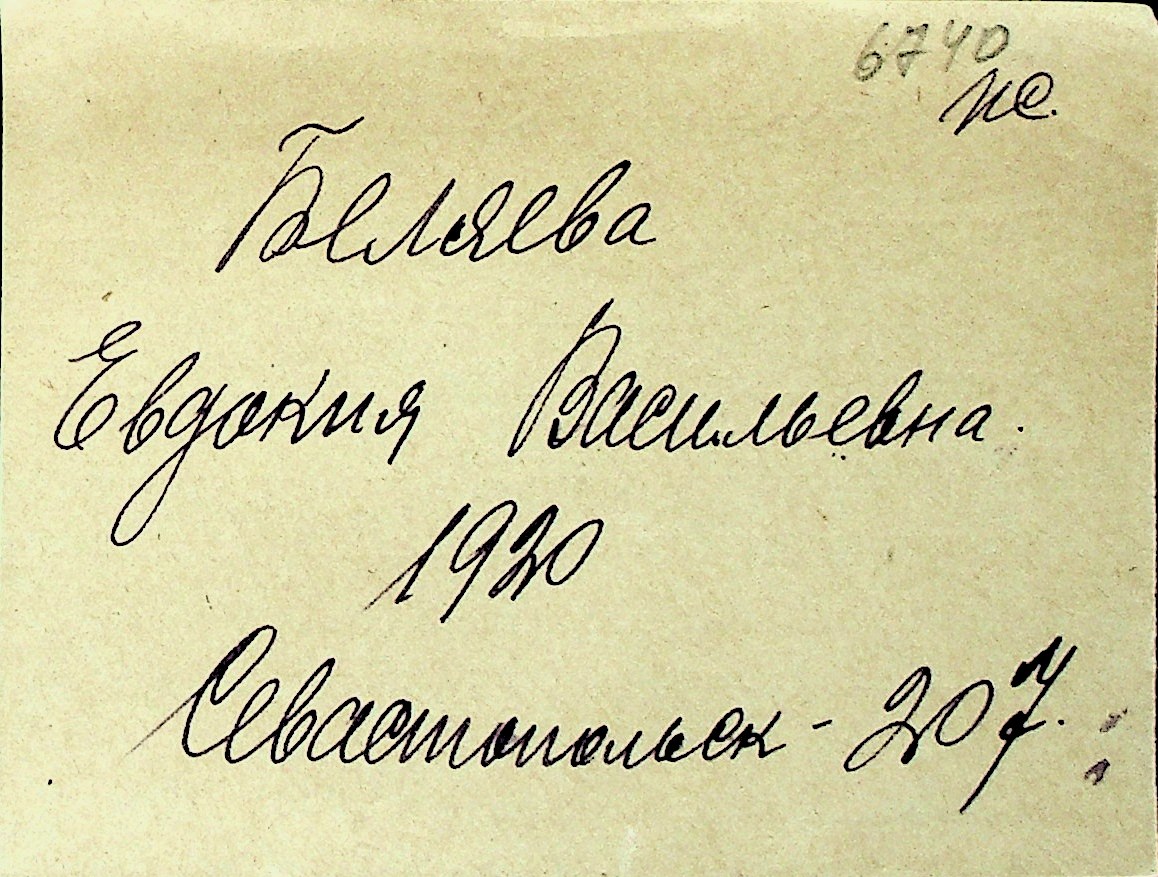 6740
пс.
Беляева
Евдокия Васильевна.
1920
Севастопольск - 207.